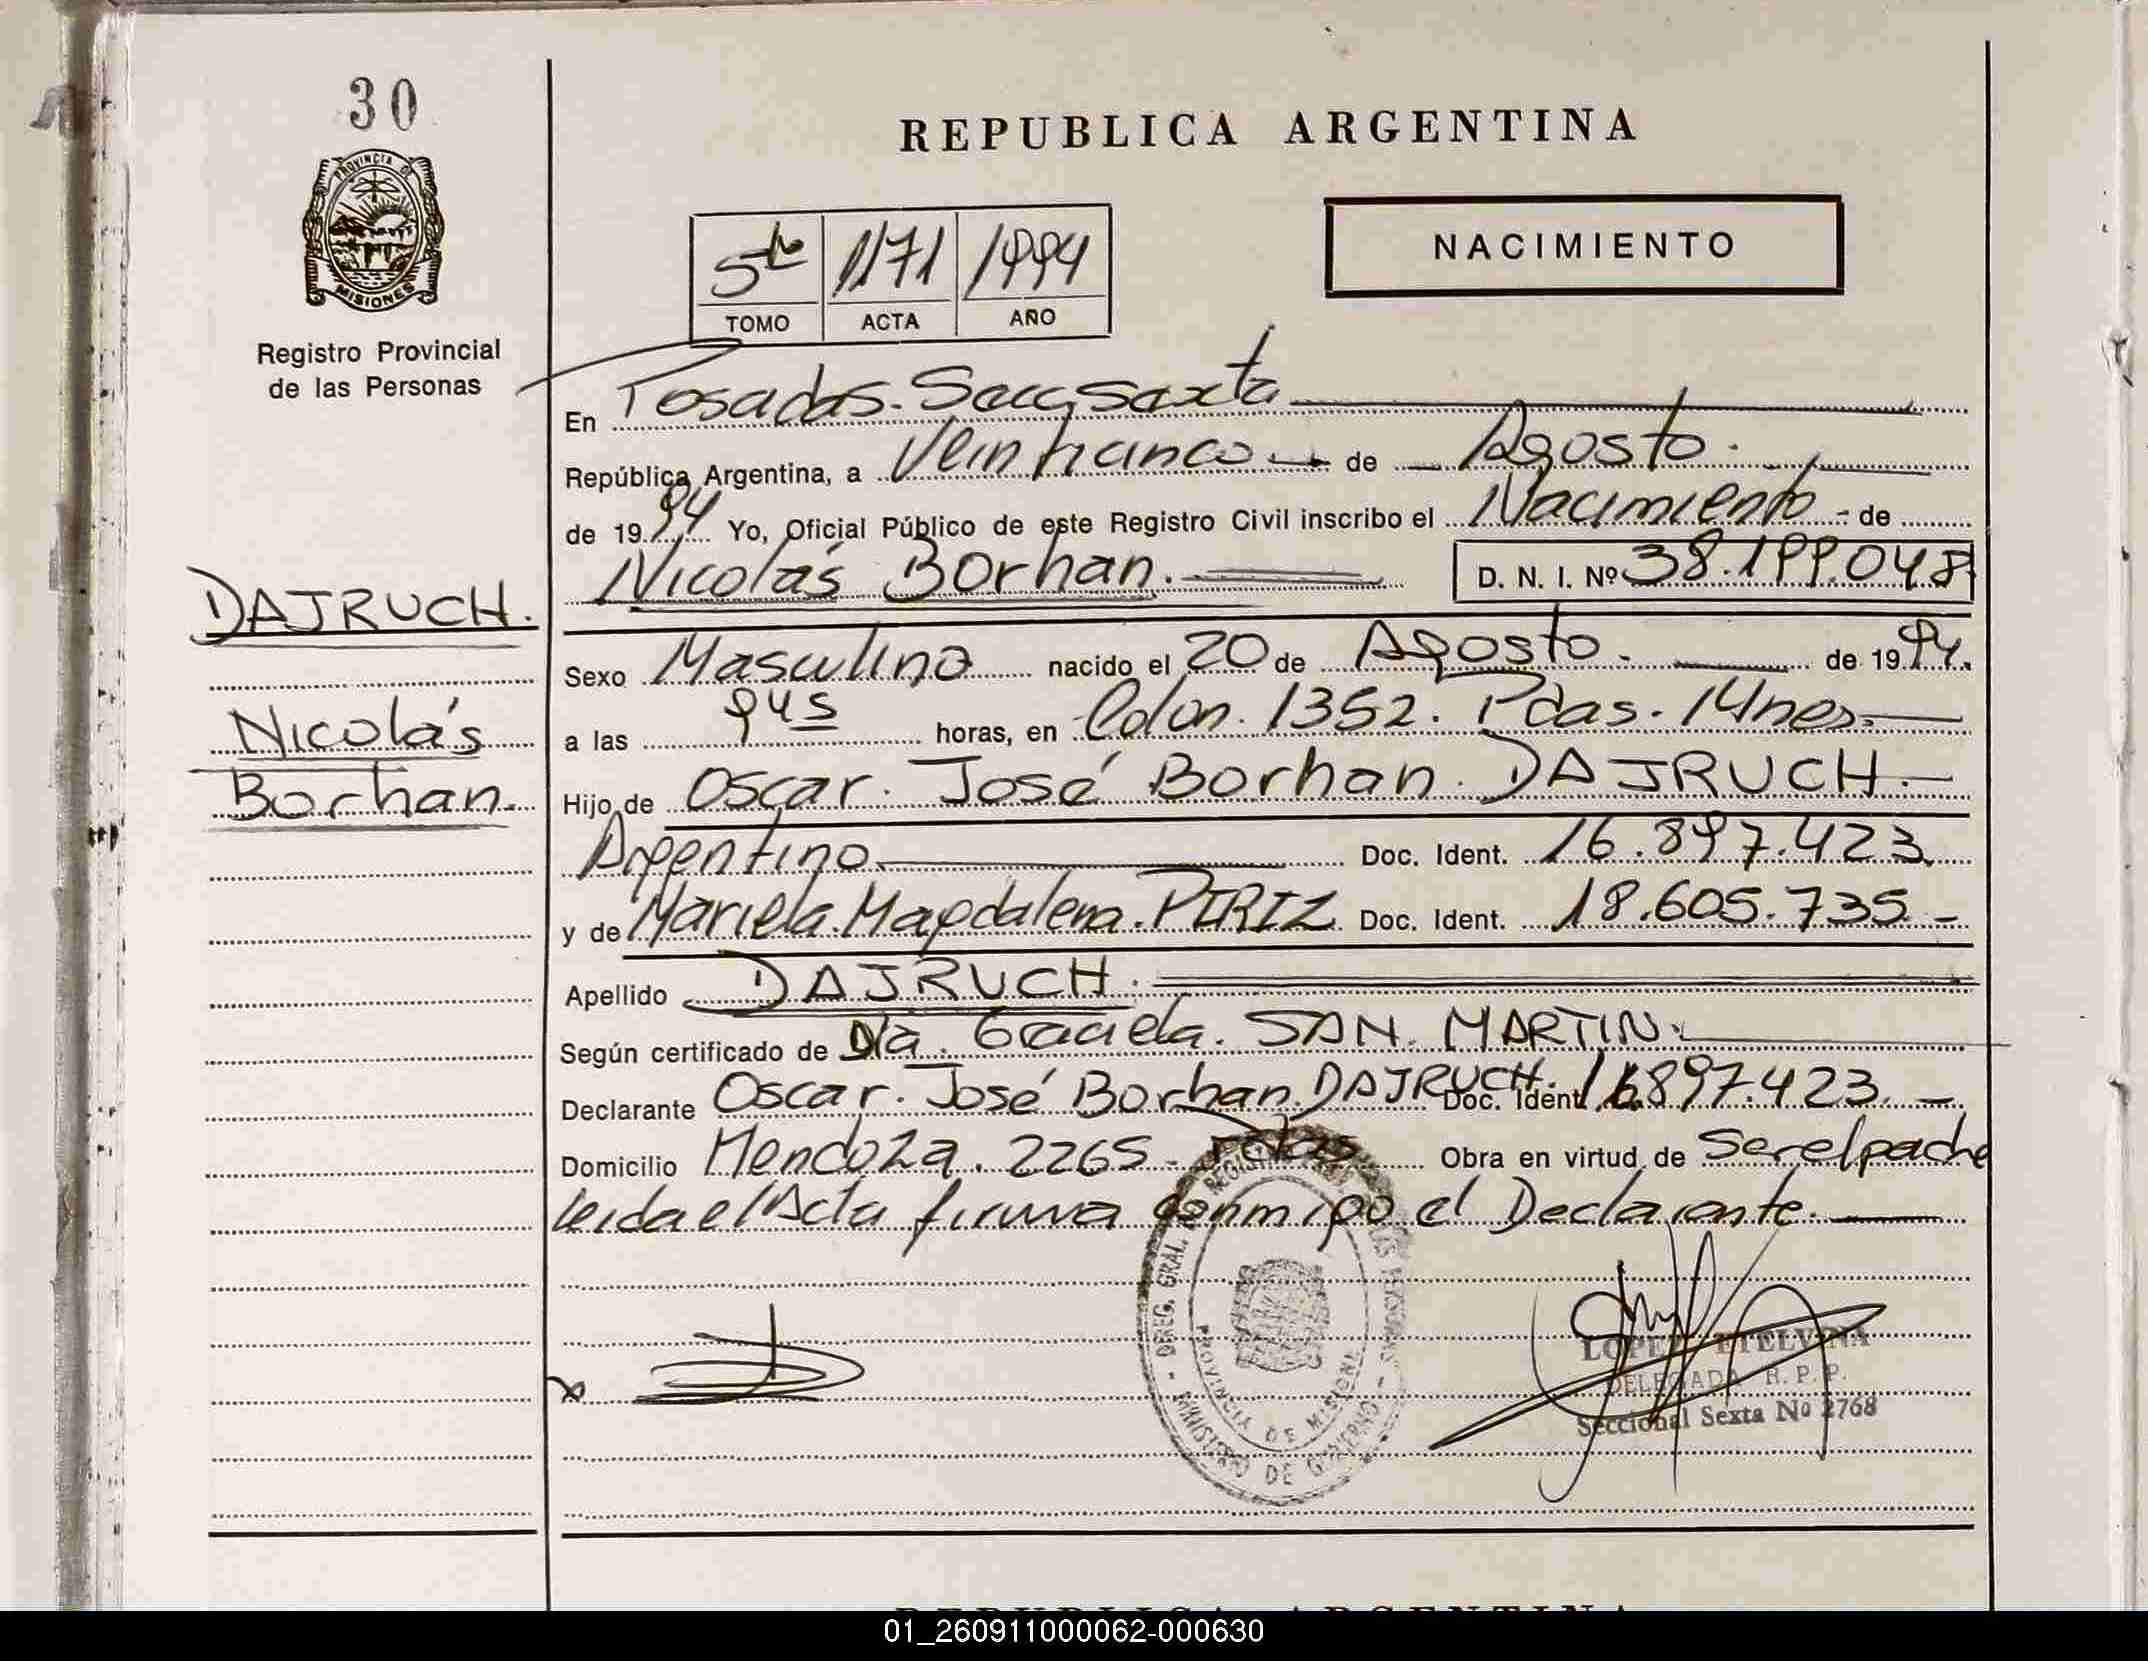 30
PROVINCIA DE
MISIONES
Registro Provincial
de las Personas
REPUBLICA ARGENTINA
NACIMIENTO
5to 1171 1994
TOMO ACTA AÑO
En Posadas. Secc Sexta
República Argentina, a Veinticinco de Agosto.
de 1994 Yo, Oficial Público de este Registro Civil inscribo el Nacimiento - de
Nicolás Borhan. D. N. I. Nº 38.199.048
DAJRUCH.
Nicolás
Borhan.
Sexo Masculino nacido el 20 de Agosto. de 1994.
a las 945 horas, en Colon. 1352. Pdas. Mnes.
Hijo de Oscar. José Borhan. DAJRUCH.
Argentino Doc. Ident. 16.897.423.
y de Mariela. Magdalena. PIRIZ Doc. Ident. 18.605.735.
Apellido DAJRUCH.
Según certificado de Dra. Graciela. SAN. MARTIN.
Declarante Oscar. José Borhan. DAJRUCH. Doc. Ident. 16.897.423.
Domicilio Mendoza. 2265. Pdas Obra en virtud de Ser el padre
leida el Acta firma conmigo el Declarante.
DREG. GRAL. REGISTRO
PROVINCIA DE MISIONES
MINISTERIO DE GOBIERNO
LOPEZ ETELVINA
DELEGADA R. P. P.
Seccional Sexta Nº 2768
REPUBLICA ARGENTINA
01_260911000062-000630